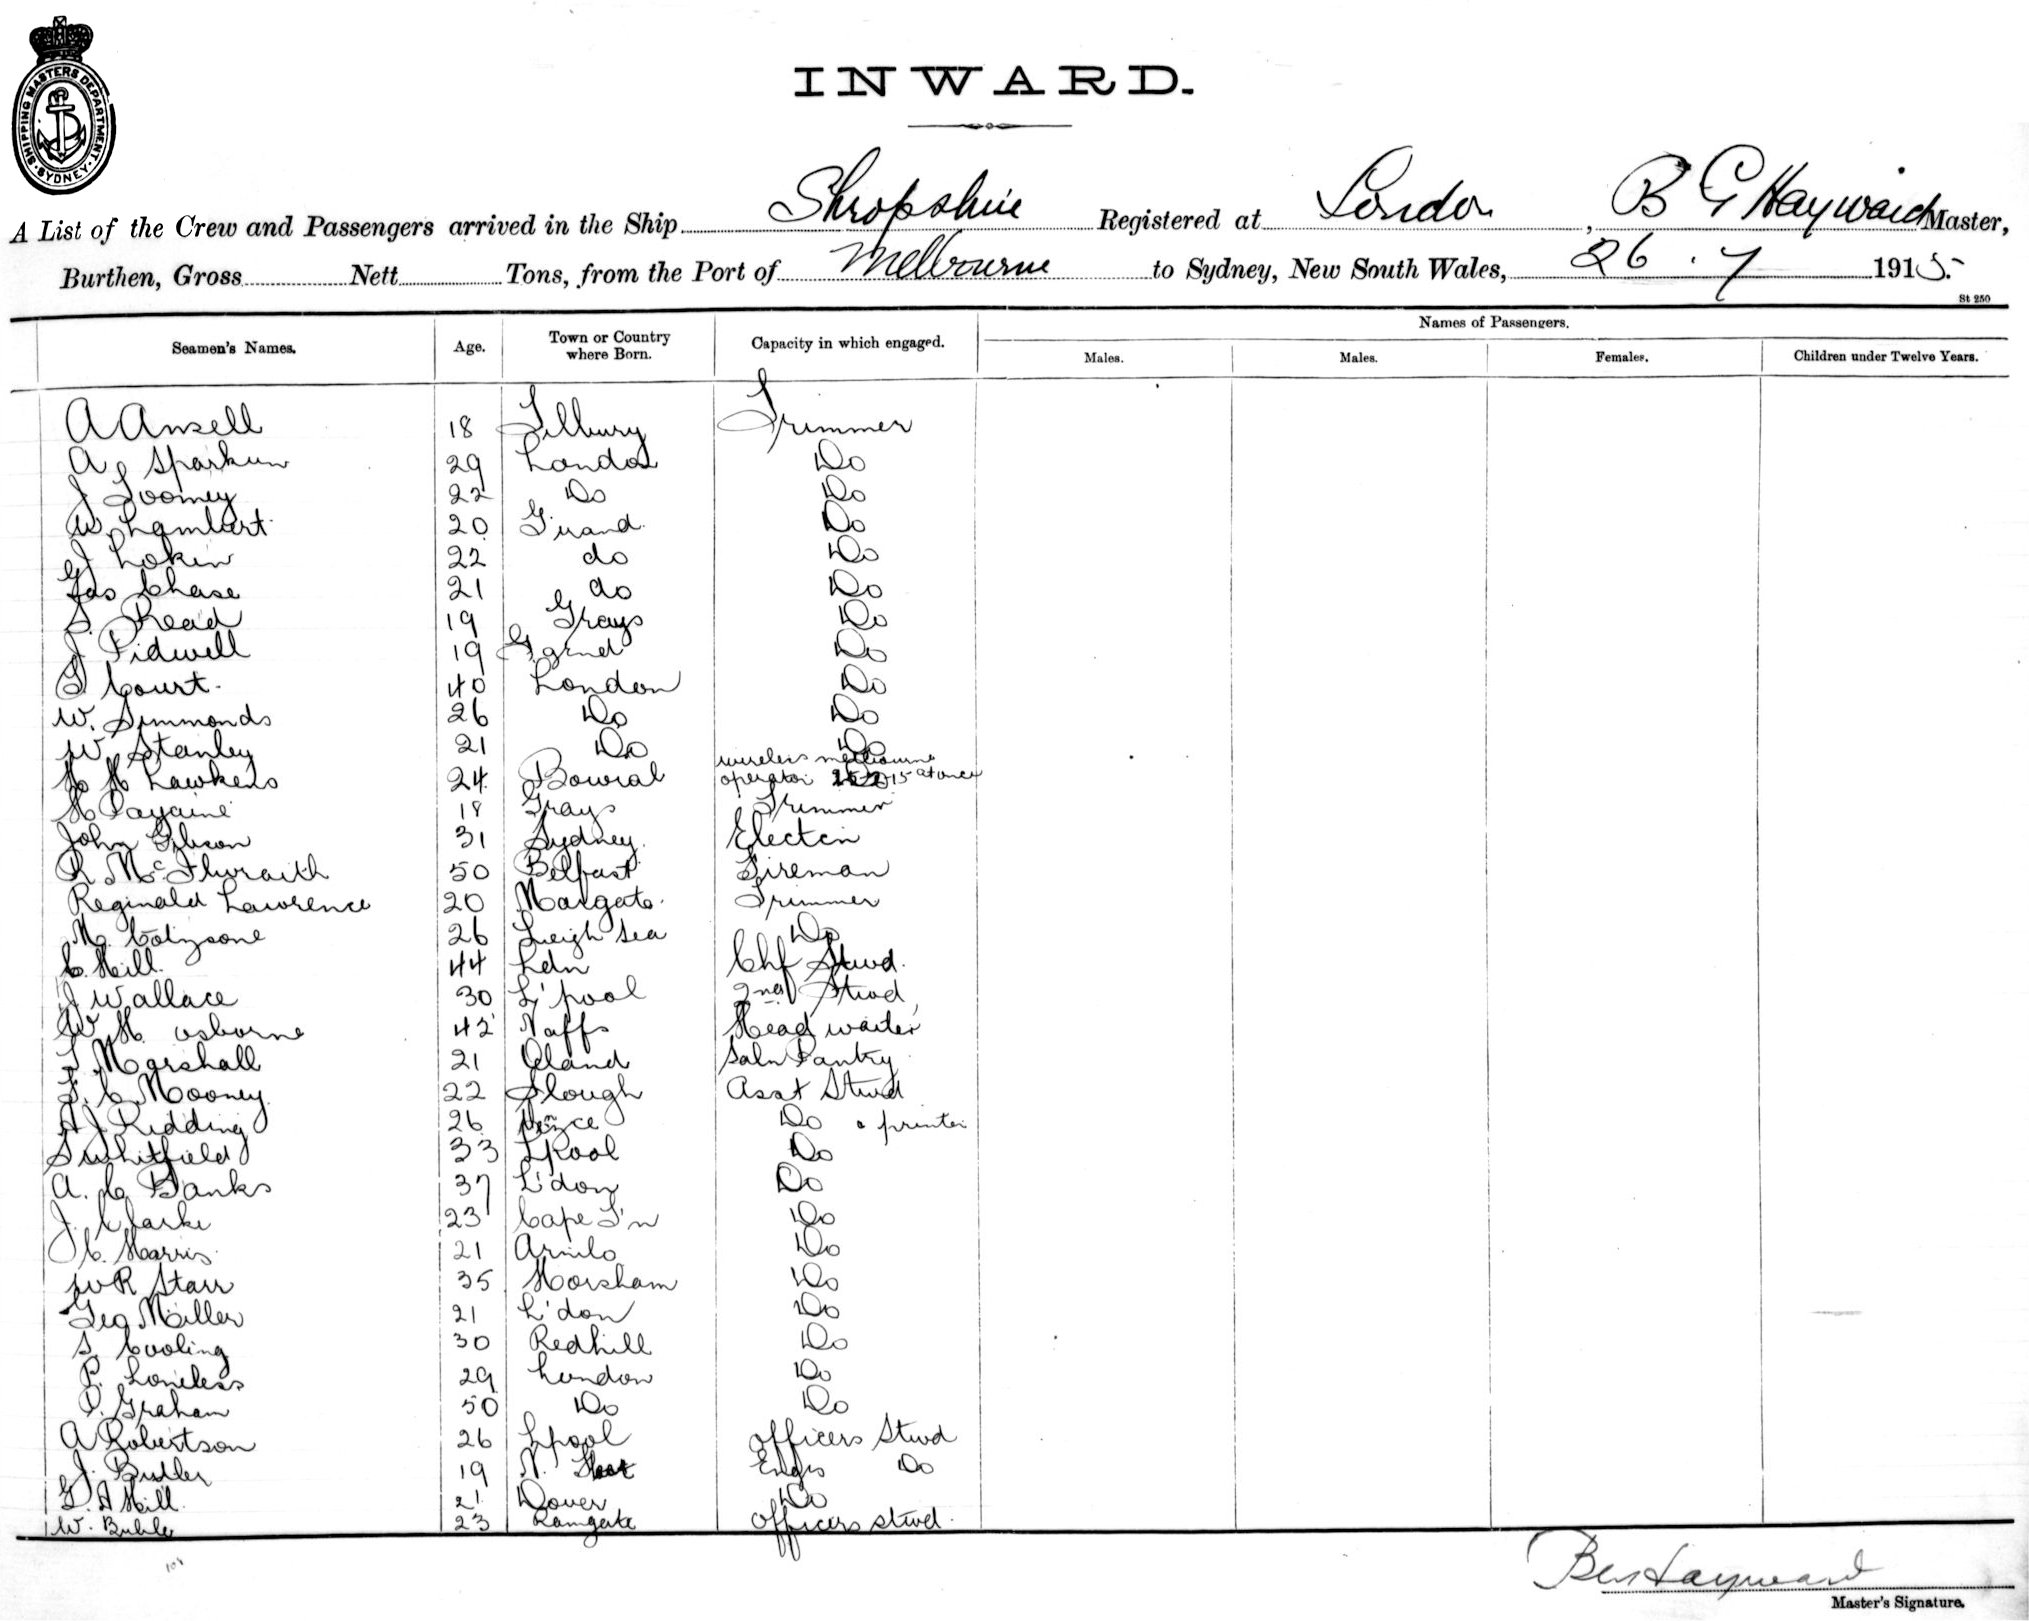 SHIPPING MASTERS DEPARTMENT. SYDNEY
INWARD.
A List of the Crew and Passengers arrived in the Ship Shropshire Registered at London, B G Hayward Master,
Burthen, Gross Nett Tons, from the Port of Melbourne to Sydney, New South Wales, 26.7 1915.
St 250
Names of Passengers.
Seamen's Names. Age. Town or Country where Born. Capacity in which engaged. Males. Males. Females. Children under Twelve Years.
A Ansell 18 Tilbury Trimmer
A 29 London Do
J Toomey 22 Do Do
W. Lambert 20 Do
J Lokin 22 do Do
Jas Chase 21 do Do
S. Read 19 Grays Do
J Pidwell 19 Do
G Court. 40 London Do
W. Simmonds 26 Do Do
W Stanley 21 Do Do
wireless melbourne
24 Bowral operator 15 at once
H 18 Grays Trimmer
John Gibson 31 Sydney. Electcn
R McIlwraith 50 Belfast Fireman
Reginald Lawrence 20 Margate. Trimmer
26 Leigh Sea Do
C. Hill. 44 Ldn Chf Stwd.
J Wallace 30 L'pool 2nd Stwd
W H Osborne 42 Head waiter
T. Marshall 21 Saln Pantry
F. C. Mooney. 22 Slough Asst Stwd
A J Ridding 26 Do & printer
S Whitfield 33 Lpool Do
A. C Banks 37 L'don Do
J. Clarke 23 Cape T'n Do
C. Harris 21 Do
W R Starr 35 Horsham Do
Geo Miller 21 L'don Do
S. Cooling 30 Redhill Do
P. Loneless 29 London Do
P. Graham 50 Do Do
A Robertson 26 Lpool Officers Stwd
J. Butler 19 N. Engrs Do
G. A Hill. 21 Dover Do
W. 23 Ramgate Officers stwd.
Ben Hayward
Master's Signature.